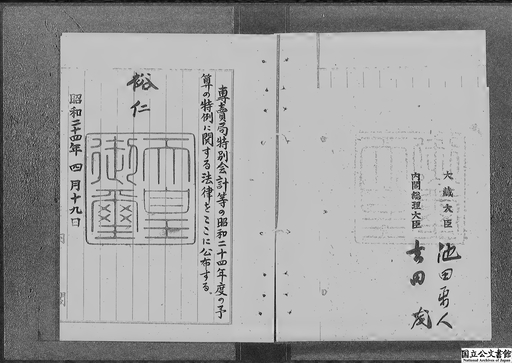 專賣局特別会計等の昭和二十四年度の予
算の特例に関する法律をここに公布する。
裕仁
天皇
御璽
昭和二十四年四月十九日
大藏大臣 池田勇人
内閣総理大臣 吉田茂
国立公文書館
National Archives of Japan